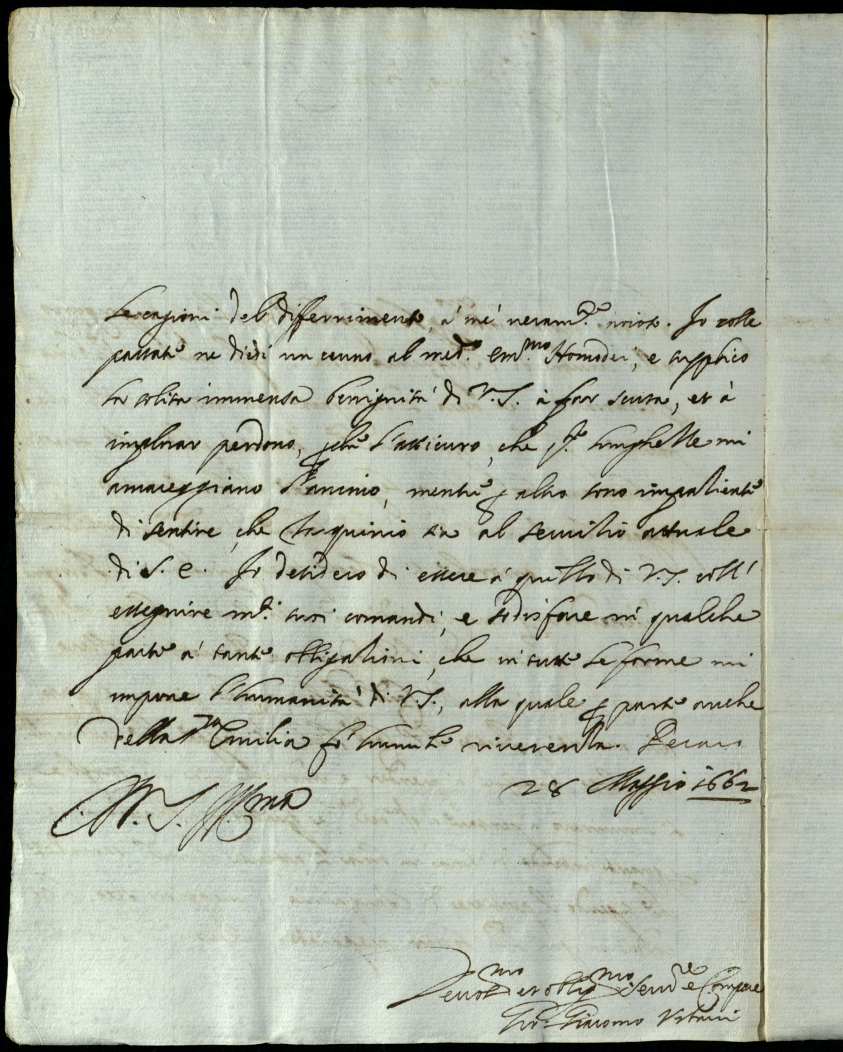 le cagioni del differimento, à mè veram.te note. Io colle
passate ne diedi un cenno al med.o Em.mo Homodei, e supplico
la solita immensa benignità di V.S. à far scusa, et à
implorar perdono, perche l'assicuro, che q.te lunghelle mi
amareggiano l'animo, mentre p altro sono impatiente
di sentire, che Tarquinio sia al servitio attuale
di S. E. Io desidero di essere à quello di V.S. coll'
esseguire m.ti suoi comandi, e sodisfare in qualche
parte à tante obligationi, che in tutte le forme mi
impone l'humanità di V.S., alla quale p parte anche
della S.ra Emilia fò humile riverenza. Pesaro
28 Maggio 1662
V. S. Ill.ma
Devot.mo et oblig.mo Serv.re e Compare
Gio: Giacomo